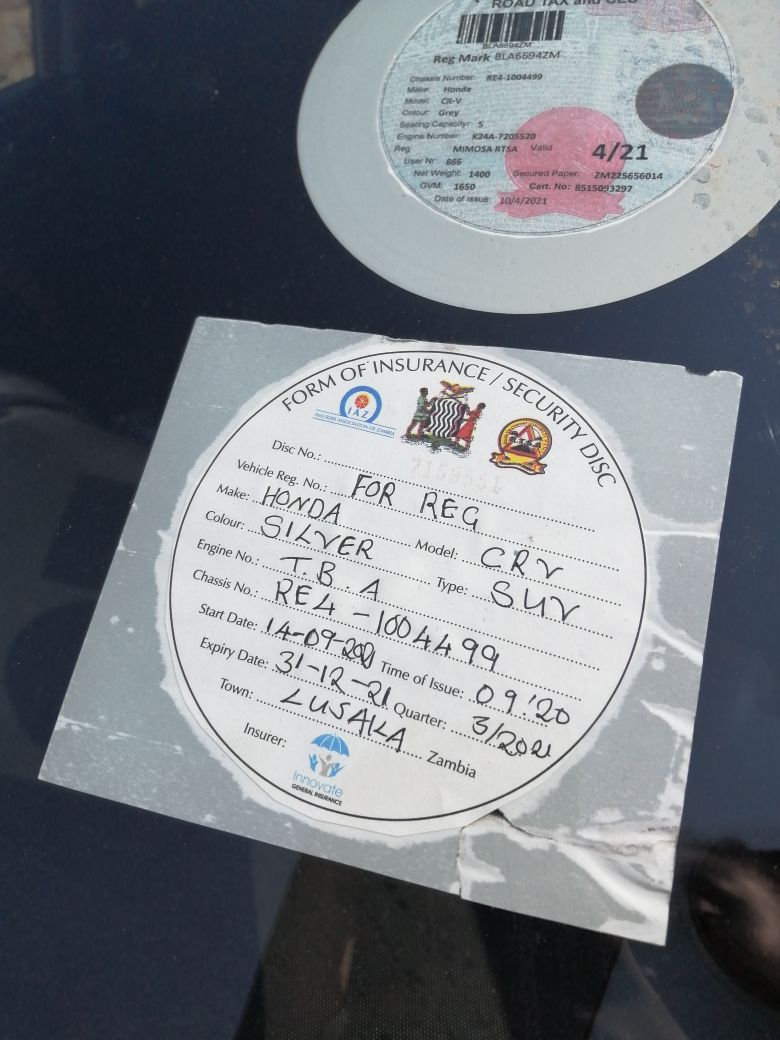 ROAD TAX and
BLA6694ZM
Reg Mark BLA6694ZM
Chassis Number: RE4-1004499
Make: Honda
Model: CR-V
Colour: Grey
Seating Capacity: 5
Engine Number: K24A-7205520
Reg MIMOSA RTSA Valid 4/21
User Nr: 866
Net Weight: 1400 Secured Paper: ZM225656014
GVM: 1650 Cert. No: 8515093297
Date of Issue: 10/4/2021
FORM OF INSURANCE / SECURITY DISC
IAZ
INSURERS ASSOCIATION OF ZAMBIA
Disc No.: 7159551
Vehicle Reg. No.: FOR REG
Make: HONDA Model: CRV
Colour: SILVER Type: SUV
Engine No.: T.B.A
Chassis No.: RE4-1004499
Start Date: 14-09-2021 Time of Issue: 09:20
Expiry Date: 31-12-21 Quarter: 3/2021
Town: LUSAKA Zambia
Insurer: Innovate
GENERAL INSURANCE